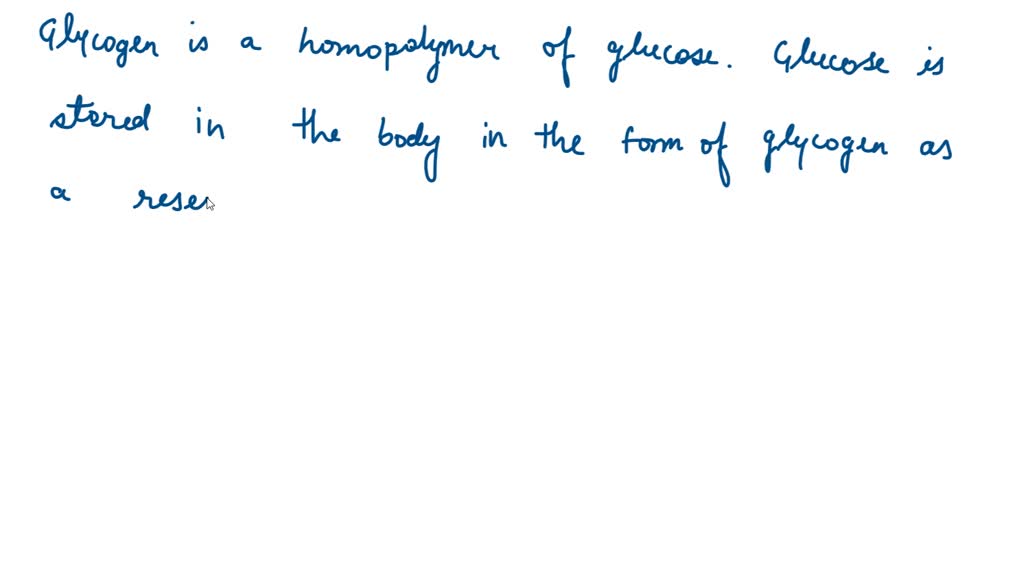 Glycogen is a homopolymer of glucose. Glucose is
stored in the body in the form of glycogen as
a rese